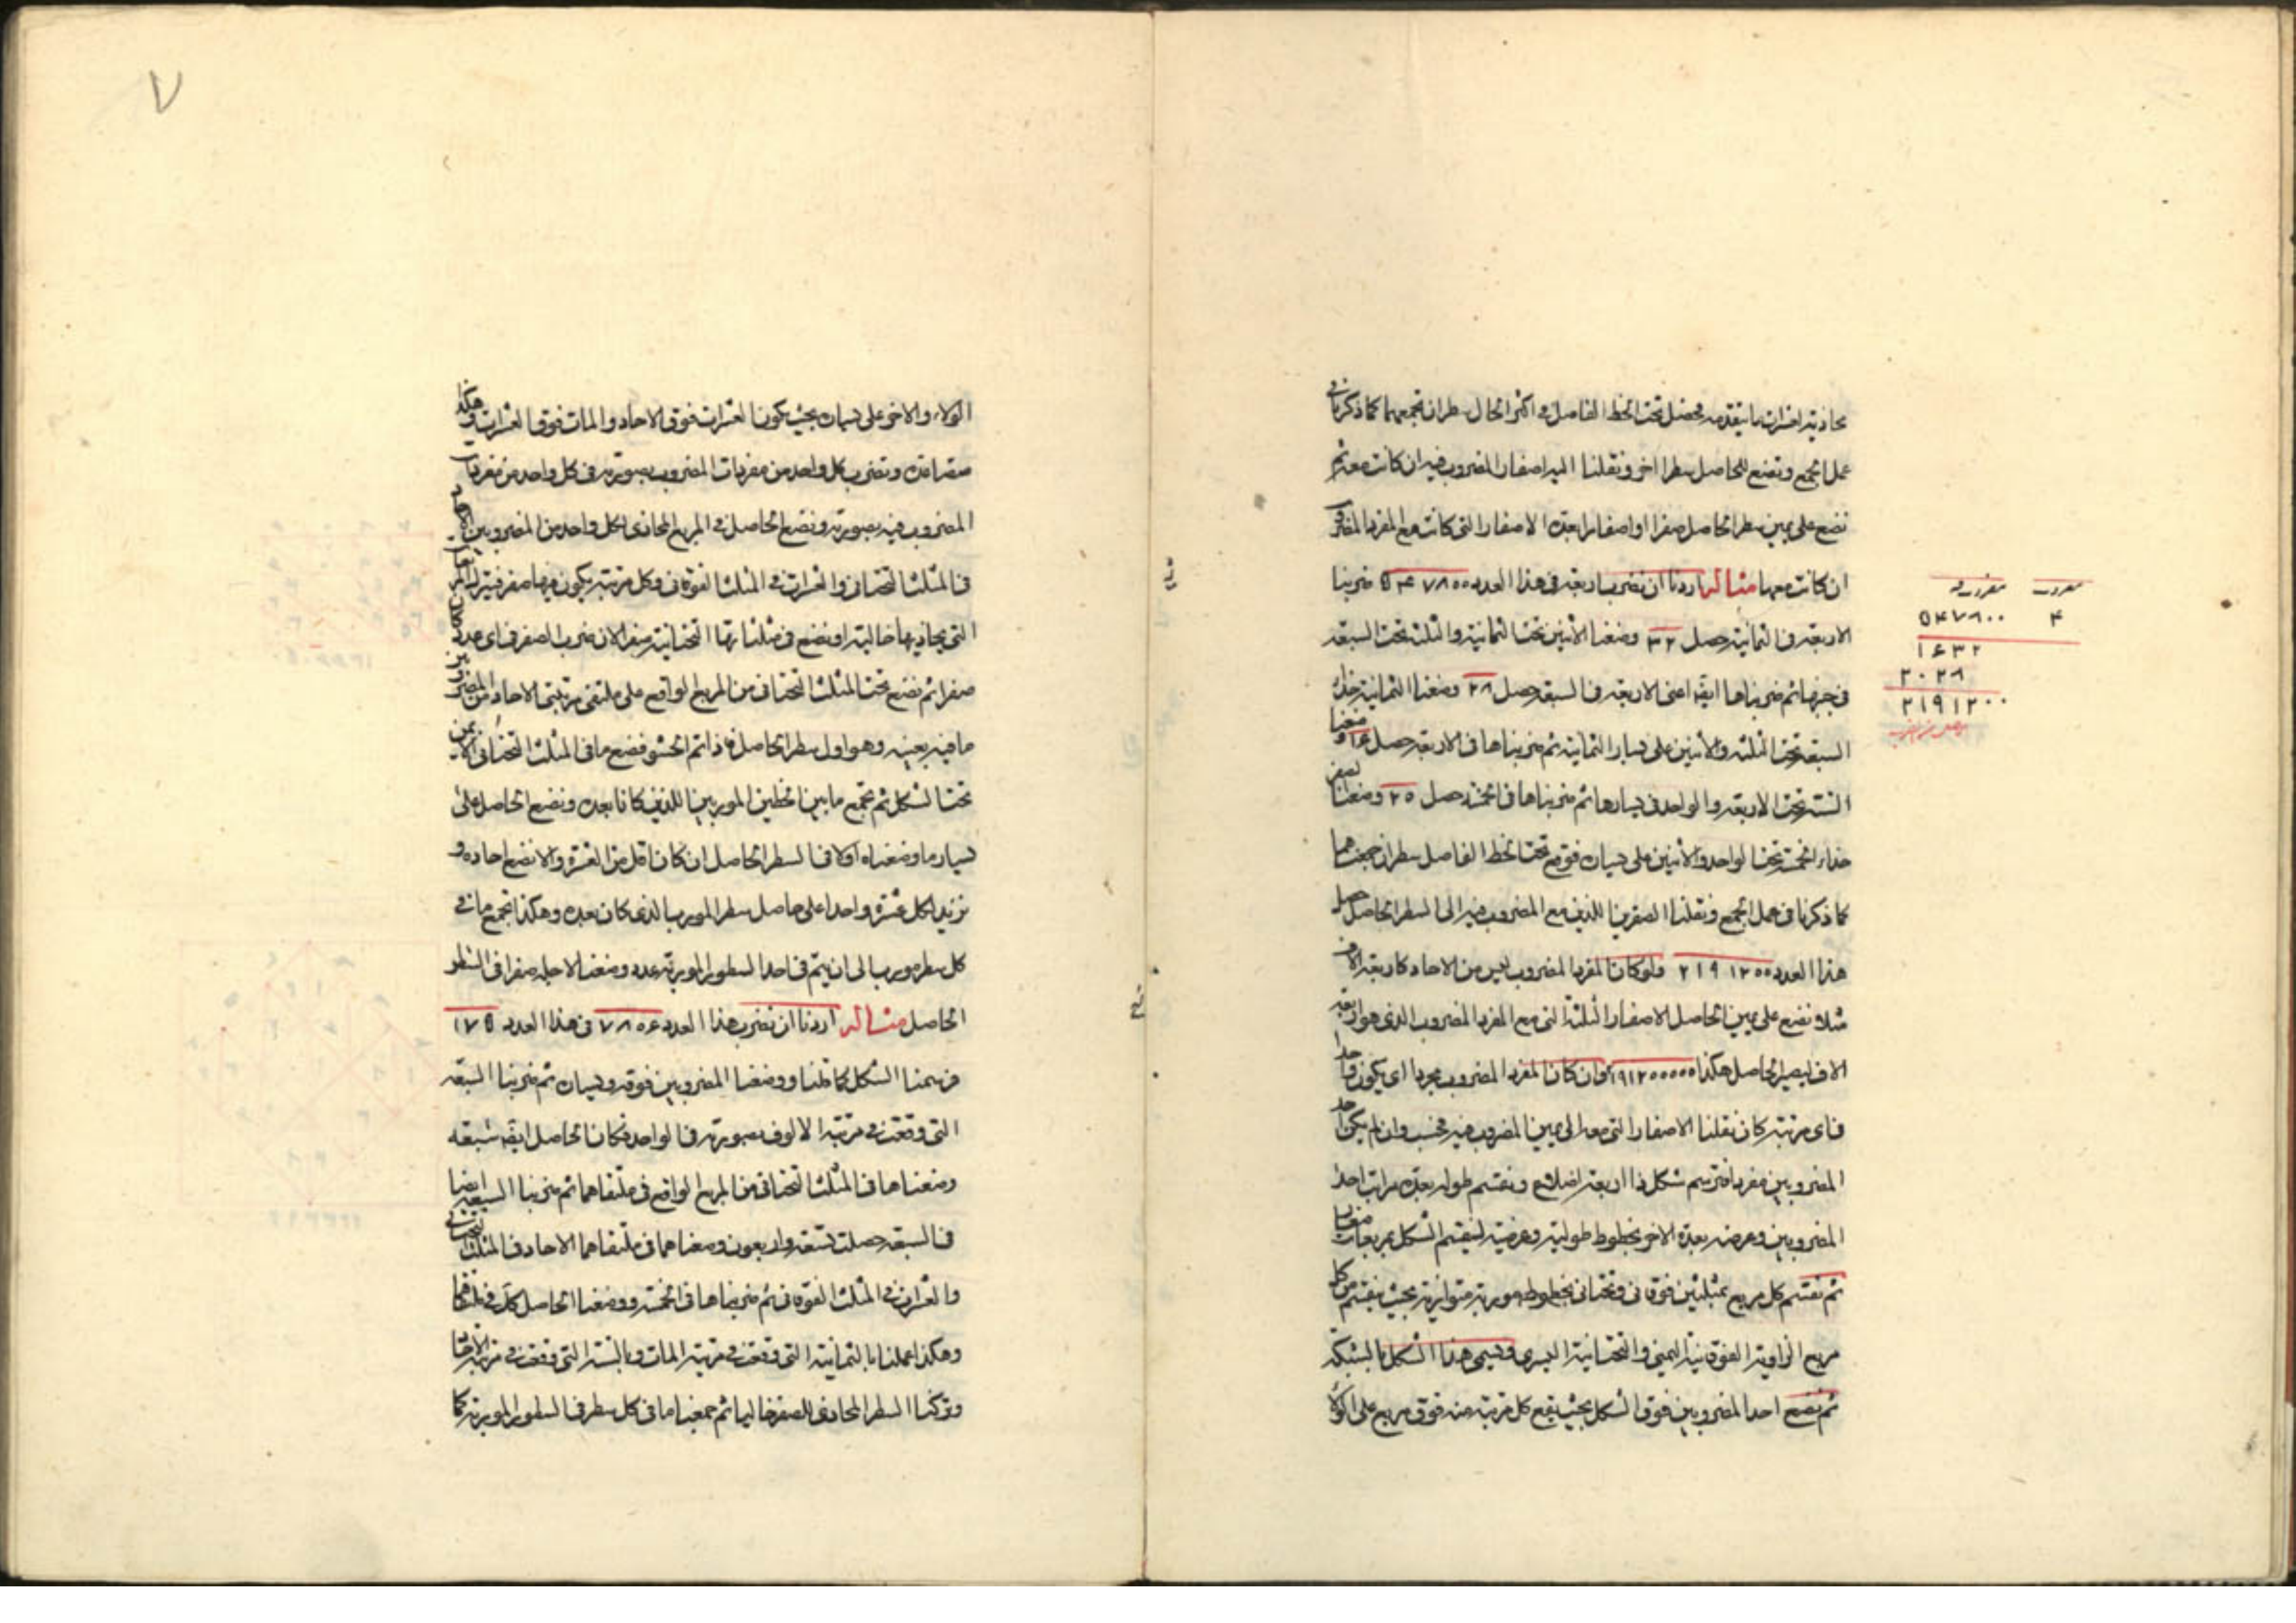 بحاذيته لعشرات ما يتقدمه فيحصل تحت الخط الفاصل فى اكثر الحال سطران نجمعهما كما ذكرنا فى
عمل الجمع ونضع للحاصل سطرا اخر ونقلنا اليه اصفار المضروب فيه ان كانت معه ثم
نضع على يمين سطر الحاصل صفرا او اصفارا بعدة الاصفار التى كانت مع المفرد المضروب
ان كانت معها مثاله اردنا ان نضرب اربعة فى هذا العدد ٥٤٧٨٠٠ ضربنا
الاربعة فى الثمانية حصل ٣٢ وضعنا الاثنين تحت الثمانية والثلثة تحت السبعة
فى جنبها ثم ضربناها ايضا اعنى الاربعة فى السبعة حصل ٢٨ وضعنا الثمانية حذاء
السبعة تحت الثلثة والاثنين على يسار الثمانية ثم ضربناها فى الاربعة حصل ١٦ وضعنا
الستة تحت الاربعة والواحد فى يسارها ثم ضربناها فى الخمسة حصل ٢٠ وضعنا الصفر
حذاء الخمسة تحت الواحد والاثنين على يساره فوقع تحت الخط الفاصل سطران جمعناهما
كما ذكرنا فى عمل الجمع ونقلنا الصفرين اللذين مع المضروب فيه الى السطر الحاصل حصل
هذا العدد ٢١٩١٢٠٠ ولو كان المفرد المضروب ليس من الاحاد كاربعة الاف
مثلا نضع على يمين الحاصل الاصفار الثلثة التى مع المفرد المضروب الذى هو اربعة
الاف ليصير الحاصل هكذا ٢١٩١٢٠٠٠٠٠ وان كان المفرد المضروب مجردا اى يكون واحدا
فى اى مرتبة كان نقلنا الاصفار التى معه الى يمين المضروب فيه فحسب وان لم يكن احد
المضروبين مفردا فنرسم شكل ذا اربعة اضلاع ونقسم طوله بعدة مراتب احد
المضروبين وعرضه بعدة الاخر بخطوط طولية وعرضية لينقسم الشكل بمربعات صغار
ثم نقسم كل مربع بمثلثين فوقانى وتحتانى بخطوط موربة متوازية بحيث ينقسم من كل
مربع الزاوية الفوقانية اليمنى والتحتانية اليسرى ويسمى هذا الشكل بالشبكة
ثم نضع احد المضروبين فوق الشكل بحيث يقع كل مرتبة منه فوق مربع على الولا
مضروب مضروب فيه
٤ ٥٤٧٨٠٠
١٦٣٢
٢٠٢٨
٢١٩١٢٠٠
٧
الولاء والاخر على يساره بحيث يكون العشرات فوق الاحاد والمات فوق العشرات وهكذا
متصاعدة ونضرب كل واحد من مفردات المضروب بصورته فى كل واحد من مفردات
المضروب فيه بصورته ونضع الحاصل فى المربع المحاذى لكل واحد من المضروبين
فى المثلث التحتانى والعشرات فى المثلث الفوقانى وكل مرتبة يكون فيها صفر
التى يحاذيها خالية او نضع فى مثلثاتها التحتانية صفرا لان ضرب الصفر فى اى عدد
صفر ثم نضع تحت المثلث التحتانى من المربع الواقع على ملتقى مرتبتى الاحاد من
ما فيه بعينه وهو اول سطر الحاصل فاذا تم الحشو فنضع ما فى المثلث التحتانى
تحت الشكل ثم نجمع ما بين الخطين الموربين اللذين كانا بعده ونضع الحاصل على
يسار ما وضعناه اولا فى السطر الحاصل ان كان اقل من العشرة والا نضع احاده و
نزيد لكل عشرة واحدا على حاصل سطر المورب الذى كان بعده وهكذا نجمع ما فى
كل سطر مورب الى ان يتم فى احد السطور الموربة عدد وضعنا لاجله صفرا فى السطر
الحاصل مثاله اردنا ان نضرب هذا العدد ٧٨٠٦ فى هذا العدد ١٧٥
فرسمنا الشكل كما قلنا ووضعنا المضروبين فوقه ويساره ثم ضربنا السبعة
التى وقعت فى مرتبة الالوف بصورته فى الواحد فكان الحاصل ايضا سبعة
وضعناها فى المثلث التحتانى من المربع الواقع فى ملتقاهما ثم ضربنا السبعة ايضا
فى السبعة حصلت تسعة واربعون وضعناهما فى ملتقاهما الاحاد فى المثلث التحتانى
والعشرات فى المثلث الفوقانى ثم ضربناها فى الخمسة ووضعنا الحاصل كل فى ملتقاهما
وهكذا عملنا بالثمانية التى وقعت فى مرتبة المات وبالستة التى وقعت فى مرتبة الاحاد
وتركنا السطر المحاذى للصفر خاليا ثم جمعنا ما فى كل سطر فى السطور الموربة كما